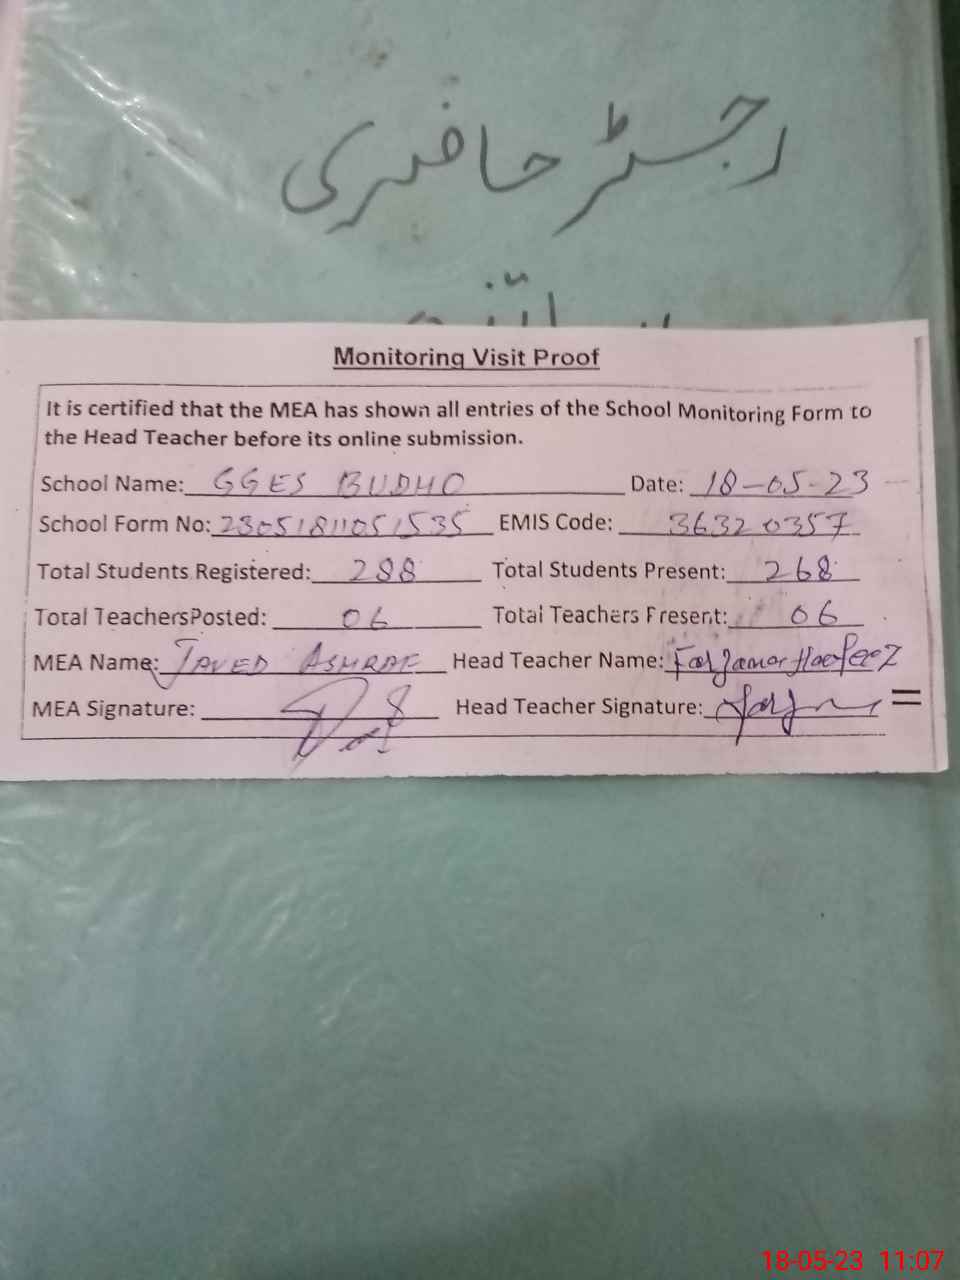 رجسٹر حاضری
Monitoring Visit Proof
It is certified that the MEA has shown all entries of the School Monitoring Form to
the Head Teacher before its online submission.
School Name: GGES BUDHO Date: 18-05-23
School Form No: 23051811051535 EMIS Code: 36320357
Total Students Registered: 288 Total Students Present: 268
Total TeachersPosted: 06 Total Teachers Present: 06
MEA Name: JAVED ASHRAF Head Teacher Name:
MEA Signature: Head Teacher Signature:
18-05-23 11:07